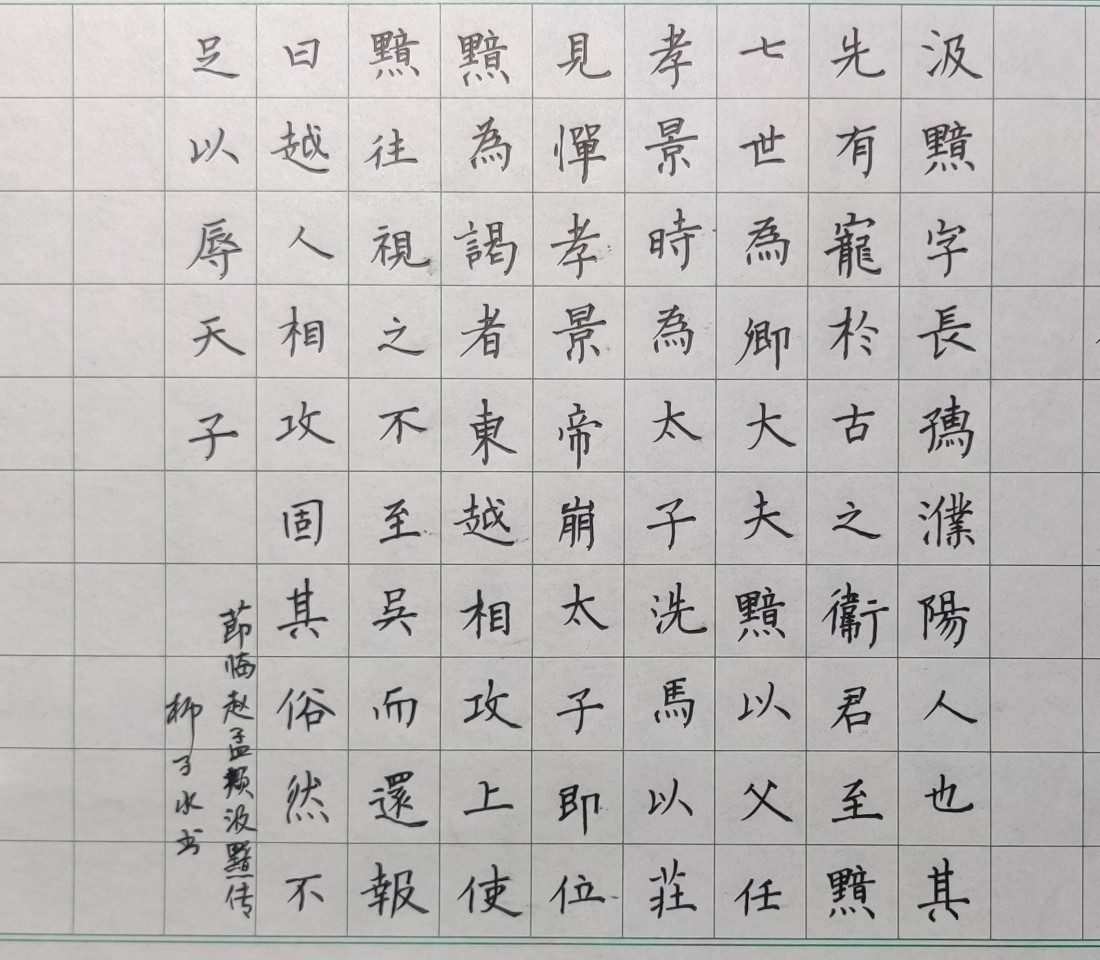 汲黯字長孺濮陽人也其
先有寵於古之衛君至黯
七世為卿大夫黯以父任
孝景時為太子洗馬以莊
見憚孝景帝崩太子即位
黯為謁者東越相攻上使
黯往視之不至吳而還報
曰越人相攻固其俗然不
足以辱天子
節临赵孟頫汲黯传
柳子水书